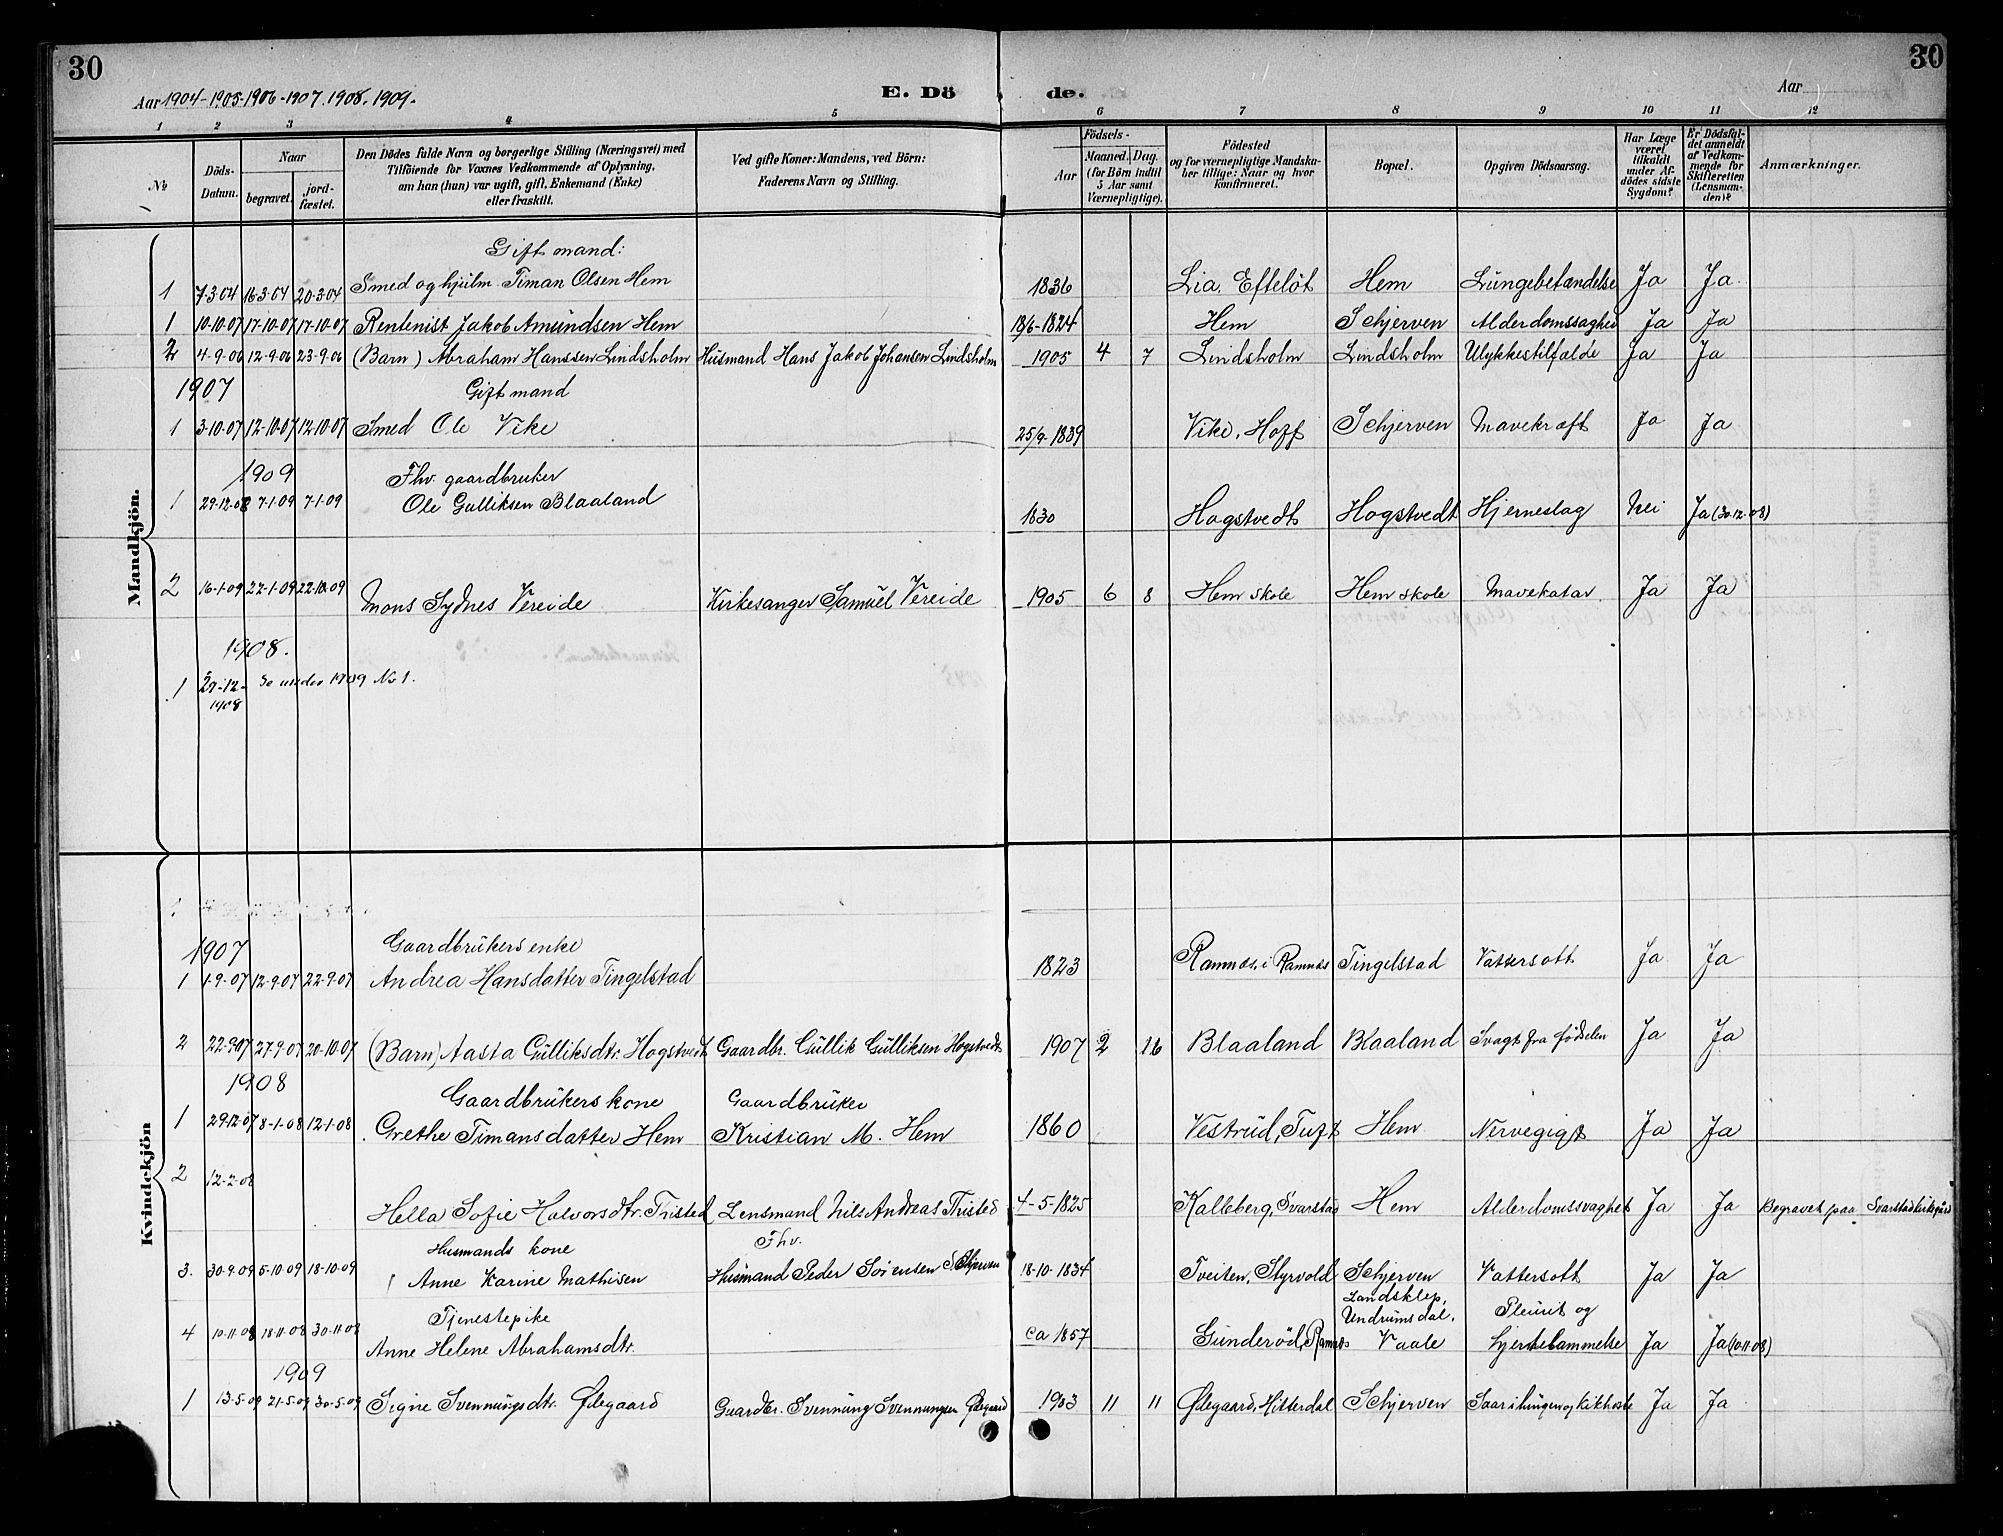 30
30
Aar 1904-1905-1906-1907. 1908. 1909.
E. Dö
de.
Aar
1 2 3 4 5 6 7 8 9 10 11 12
№
Döds-Datum.
Naar
begravet.
jord-fæstet.
Den Dödes fulde Navn og borgerlige Stilling (Næringsvei) med
Tilföiende for Voxnes Vedkommende af Oplysning,
om han (hun) var ugift, gift, Enkemand (Enke)
eller fraskilt.
Ved gifte Koner: Mandens, ved Börn:
Faderens Navn og Stilling.
Födsels-
Aar
Maaned. Dag.
(for Börn indtil
5 Aar samt
Værnepligtige).
Födested
og for værnepligtige Mandska-
ber tillige: Naar og hvor
konfirmeret.
Bopæl.
Opgiven Dödsaarsag.
Har Læge
været
tilkaldt
under Af-
dödes sidste
Sygdom?
Er Dödsfal-
det anmeldt
af Vedkom-
mende for
Skifteretten
(Lensman-
den)?
Anmærkninger.
Mandkjön.
Gift mand:
1 7-3-04 16-3-04 20-3-04 Smed og hjulm. Timan Olsen Hem 1836 Lia, Efteløt Hem Lungebetændelse Ja Ja.
1 10-10-07 17-10-07 17-10-07 Rentenist Jakob Amundsen Hem 18/6-1824 Hem Schjerven Alderdomssaghed Ja Ja
2 4-9-06 12-9-06 23-9-06 (Barn) Abraham Hanssen Lindsholm Husmand Hans Jakob Johansen Lindsholm 1905 4 7 Lindsholm Lindsholm Ulykkestilfælde Ja Ja
1907 Gift mand
1 3-10-07 12-10-07 12-10-07 Smed Ole Vike 25/9-1839 Vike, Hoff Schjerven Mavekræft Ja Ja
1909 Fhv. gaardbruker
1 29-12-08 7-1-09 7-1-09 Ole Gulliksen Blaaland 1830 Hogstvedt Hogstvedt Hjerneslag Nei Ja (30-12-08)
2 16-1-09 22-1-09 22-10-09 Mons Sydnes Vereide Kirkesanger Samuel Vereide 1905 6 8 Hem skole Hem skole Mavekatar. Ja Ja
1908.
1 29-12-1908 Se under 1909 No 1.
Kvindekjön
1907 Gaardbrukers enke
1 1-9-07 12-9-07 22-9-07 Andrea Hansdatter Tingelstad 1823 Ramnæs, i Ramnes Tingelstad Vattersott Ja Ja
2 22-9-07 27-9-07 20-10-07 (Barn) Aasta Gulliksdtr. Hogstvedt Gaardbr. Gullik Gulliksen Hogstvedt 1907 2 16 Blaaland Blaaland Svagt fra fødselen Ja Ja
1908 Gaardbrukers kone Gaardbruker
1 29-12-07 8-1-08 12-1-08 Grethe Timansdatter Hem Kristian M. Hem 1860 Vestrud, Tuft Hem Nervegigt Ja Ja
2 12-2-08
Hella Sofie Halvorsdtr. Tristed Lensmand Nils Andreas Tristed 4-5-1825 Kalleberg, Svarstad Hem Alderdomssvaghet Ja Ja Begravet paa Svarstad kirkegård
Husmands kone Fhv.
3. 30-9-09 5-10-09 18-10-09 Anne Karine Mathisen Husmand Peder Sørensen Schjerven 18-10-1834 Tveiten, Styrvold Schjerven Vattersott Ja Ja
Tjenestepike Landsklep, Undrumsdal, Pleurit og
4 10-11-08 18-11-08 30-11-08 Anne Helene Abrahamsdtr. ca 1857 Gunderød, Ramnes Vaale hjertelammelse Ja Ja (10-11-08)
1909
1 13-5-09 21-5-09 30-5-09 Signe Svennungsdtr. Ødegaard Gaardbr. Svennung Svennungsen Ødegaard 1903 11 11 Ødegaard, Hitterdal Schjerven Saar i lungen og kikhoste Ja Ja